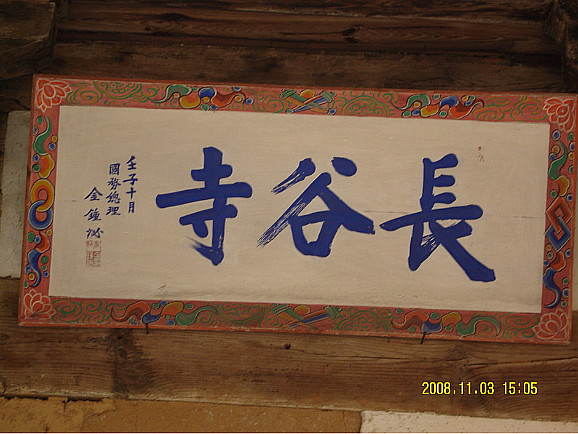 長谷寺
壬子十月
國務總理
金鍾泌
2008.11.03 15:05